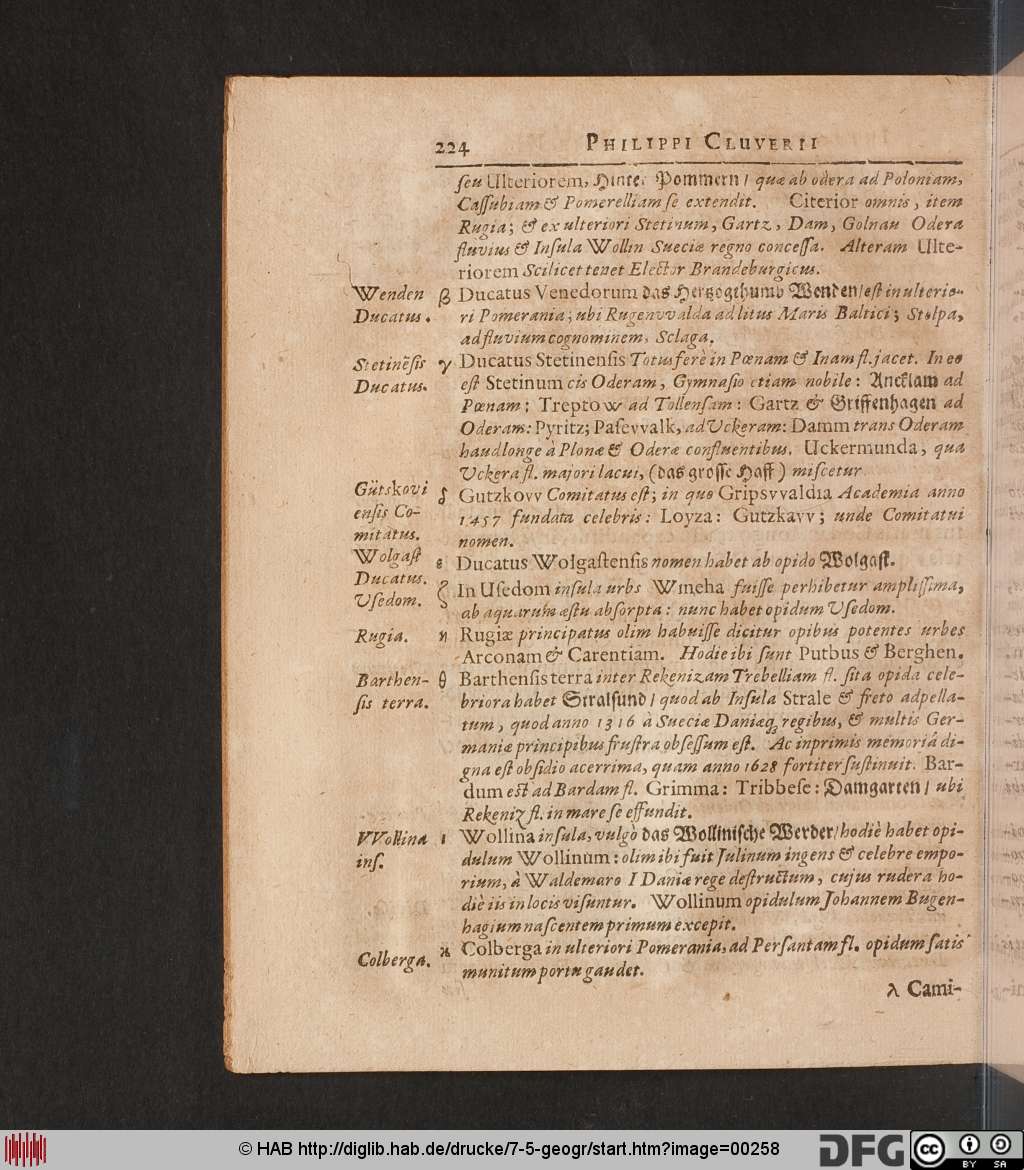 224 PHILIPPI CLUVERII
ſeu Ulteriorem, Hinter Pommern / quæ ab odera ad Poloniam,
Caſſubiam & Pomerelliam ſe extendit. Citerior omnis, item
Rugia; & ex ulteriori Stetinum, Gartz, Dam, Golnau Odera
fluvius & Inſula Wollin Sueciæ regno conceſſa. Alteram Ulte-
riorem Scilicet tenet Elector Brandeburgicus.
Wenden Ducatus.
β Ducatus Venedorum das Hertzogthumb Wenden / eſt in ulterio-
ri Pomerania; ubi Rugenvvalda ad litus Maris Baltici; Stolpa,
ad fluvium cognominem, Sclaga.
Stetinẽſis Ducatus.
γ Ducatus Stetinenſis Totus ferè in Pœnam & Inam fl. jacet. In eo
eſt Stetinum cis Oderam, Gymnaſio etiam nobile: Ancklam ad
Pœnam; Treptow ad Tollenſam: Gartz & Griffenhagen ad
Oderam: Pyritz; Paſevvalk, ad Uckeram: Damm trans Oderam
haud longe à Plonæ & Oderæ confluentibus. Uckermunda, qua
Uckera fl. majori lacui, (das groſſe Haff) miſcetur
Gütskovi
enſis Co-
mitatus.
δ Gutzkovv Comitatus eſt; in quo Gripsvvaldia Academia anno
1457 fundata celebris: Loyza: Gutzkavv; unde Comitatui
nomen.
Wolgaſt
Ducatus.
ε Ducatus Wolgaſtenſis nomen habet ab opido Wolgaſt.
Uſedom.
ζ In Uſedom inſula urbs Wineha fuiſſe perhibetur ampliſſima,
ab aquarum æſtu abſorpta: nunc habet opidum Uſedom.
Rugia.
η Rugiæ principatus olim habuiſſe dicitur opibus potentes urbes
Arconam & Carentiam. Hodie ibi ſunt Putbus & Berghen.
Barthen-
ſis terra.
θ Barthenſis terra inter Rekenizam Trebelliam fl. ſita opida cele-
briora habet Stralſund / quod ab Inſula Strale & freto adpella-
tum, quod anno 1316 à Sueciæ Daniæq; regibus, & multis Ger-
maniæ principibus fruſtra obſeſſum eſt. Ac inprimis memoriâ di-
gna eſt obſidio acerrima, quam anno 1628 fortiter ſuſtinuit. Bar-
dum eſt ad Bardam fl. Grimma: Tribbeſe: Damgarten / ubi
Rekeniz fl. in mare ſe effundit.
VVollina
inſ.
ι Wollina inſula, vulgò das Wolliniſche Werder / hodiè habet opi-
dulum Wollinum: olim ibi fuit Julinum ingens & celebre empo-
rium, à Waldemaro I Daniæ rege deſtructum, cujus rudera ho-
diè iis in locis viſuntur. Wollinum opidulum Johannem Bugen-
hagium naſcentem primum excepit.
Colberga.
ϰ Colberga in ulteriori Pomerania, ad Perſantam fl. opidum ſatis
munitum portu gaudet.
λ Cami-
© HAB http://diglib.hab.de/drucke/7-5-geogr/start.htm?image=00258
DFG
cc BY SA